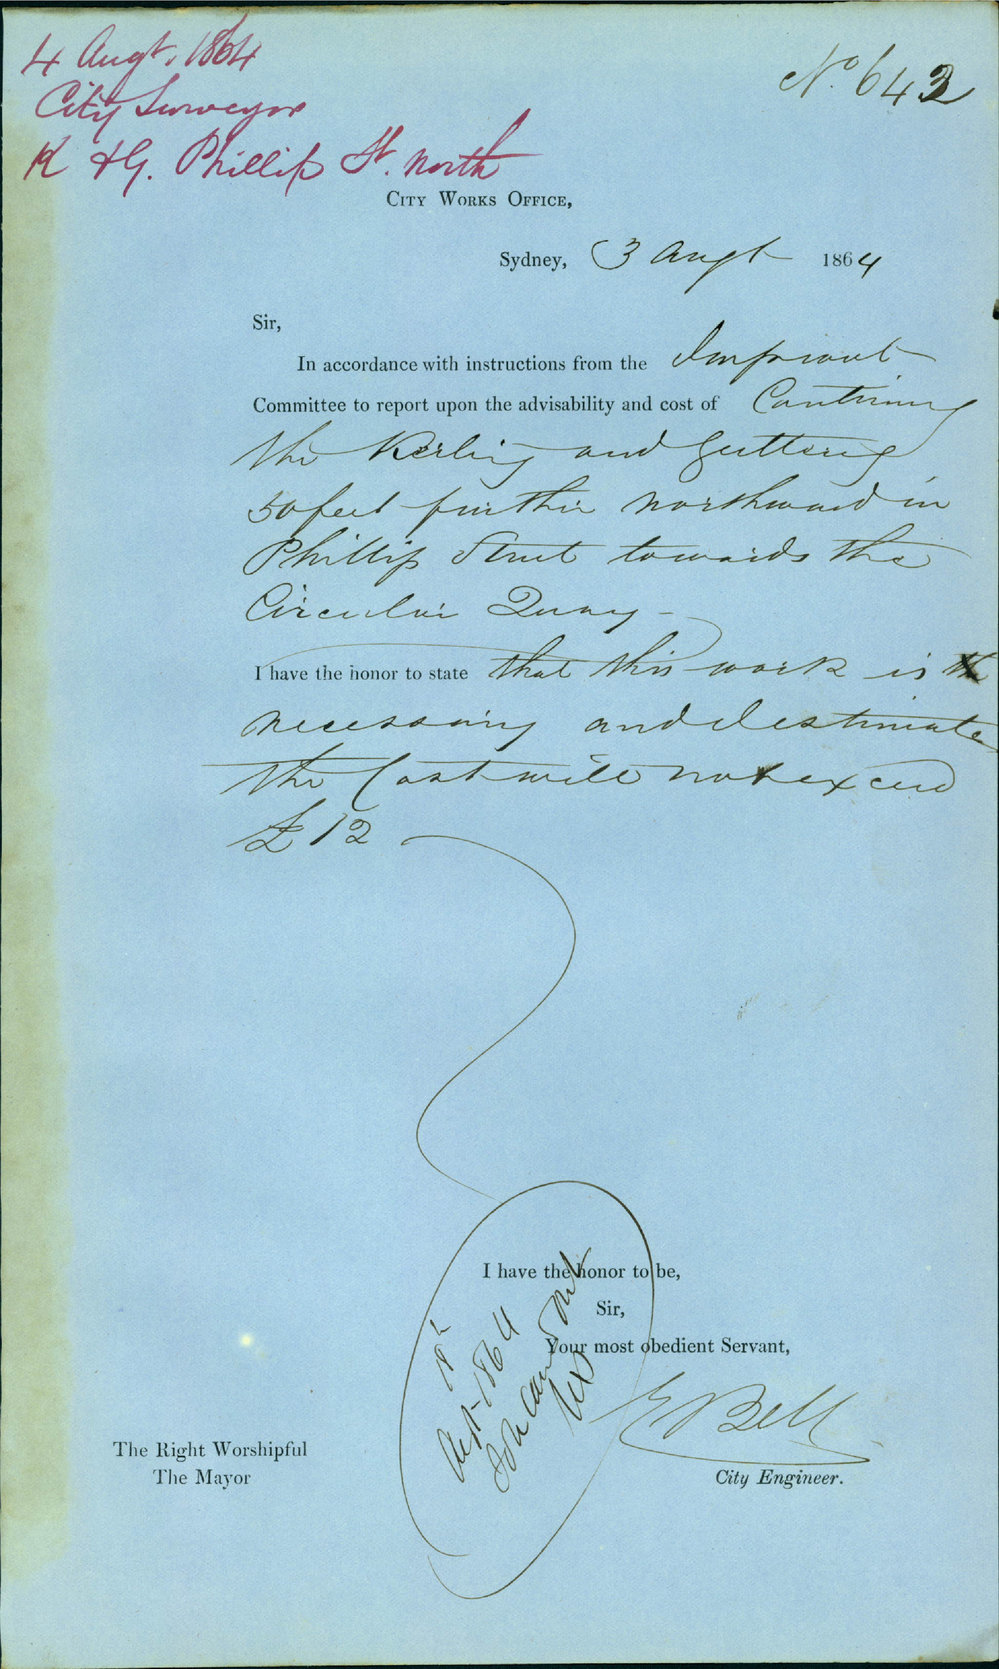 4 Augt. 1864
City Surveyor
K & G. Phillip St. North
No 643
City Works Office,
Sydney, 3 Augt 1864
Sir,
In accordance with instructions from the Improvmt
Committee to report upon the advisability and cost of Continuing
the Kerbing and Guttering
50 feet further northward in
Phillip Street towards the
Circular Quay -
I have the honor to state that this work is
necessary and I estimate
the Cost will not exceed
£12
I have the honor to be,
Sir,
Your most obedient Servant,
E Bell
City Engineer.
The Right Worshipful
The Mayor
18th
1864